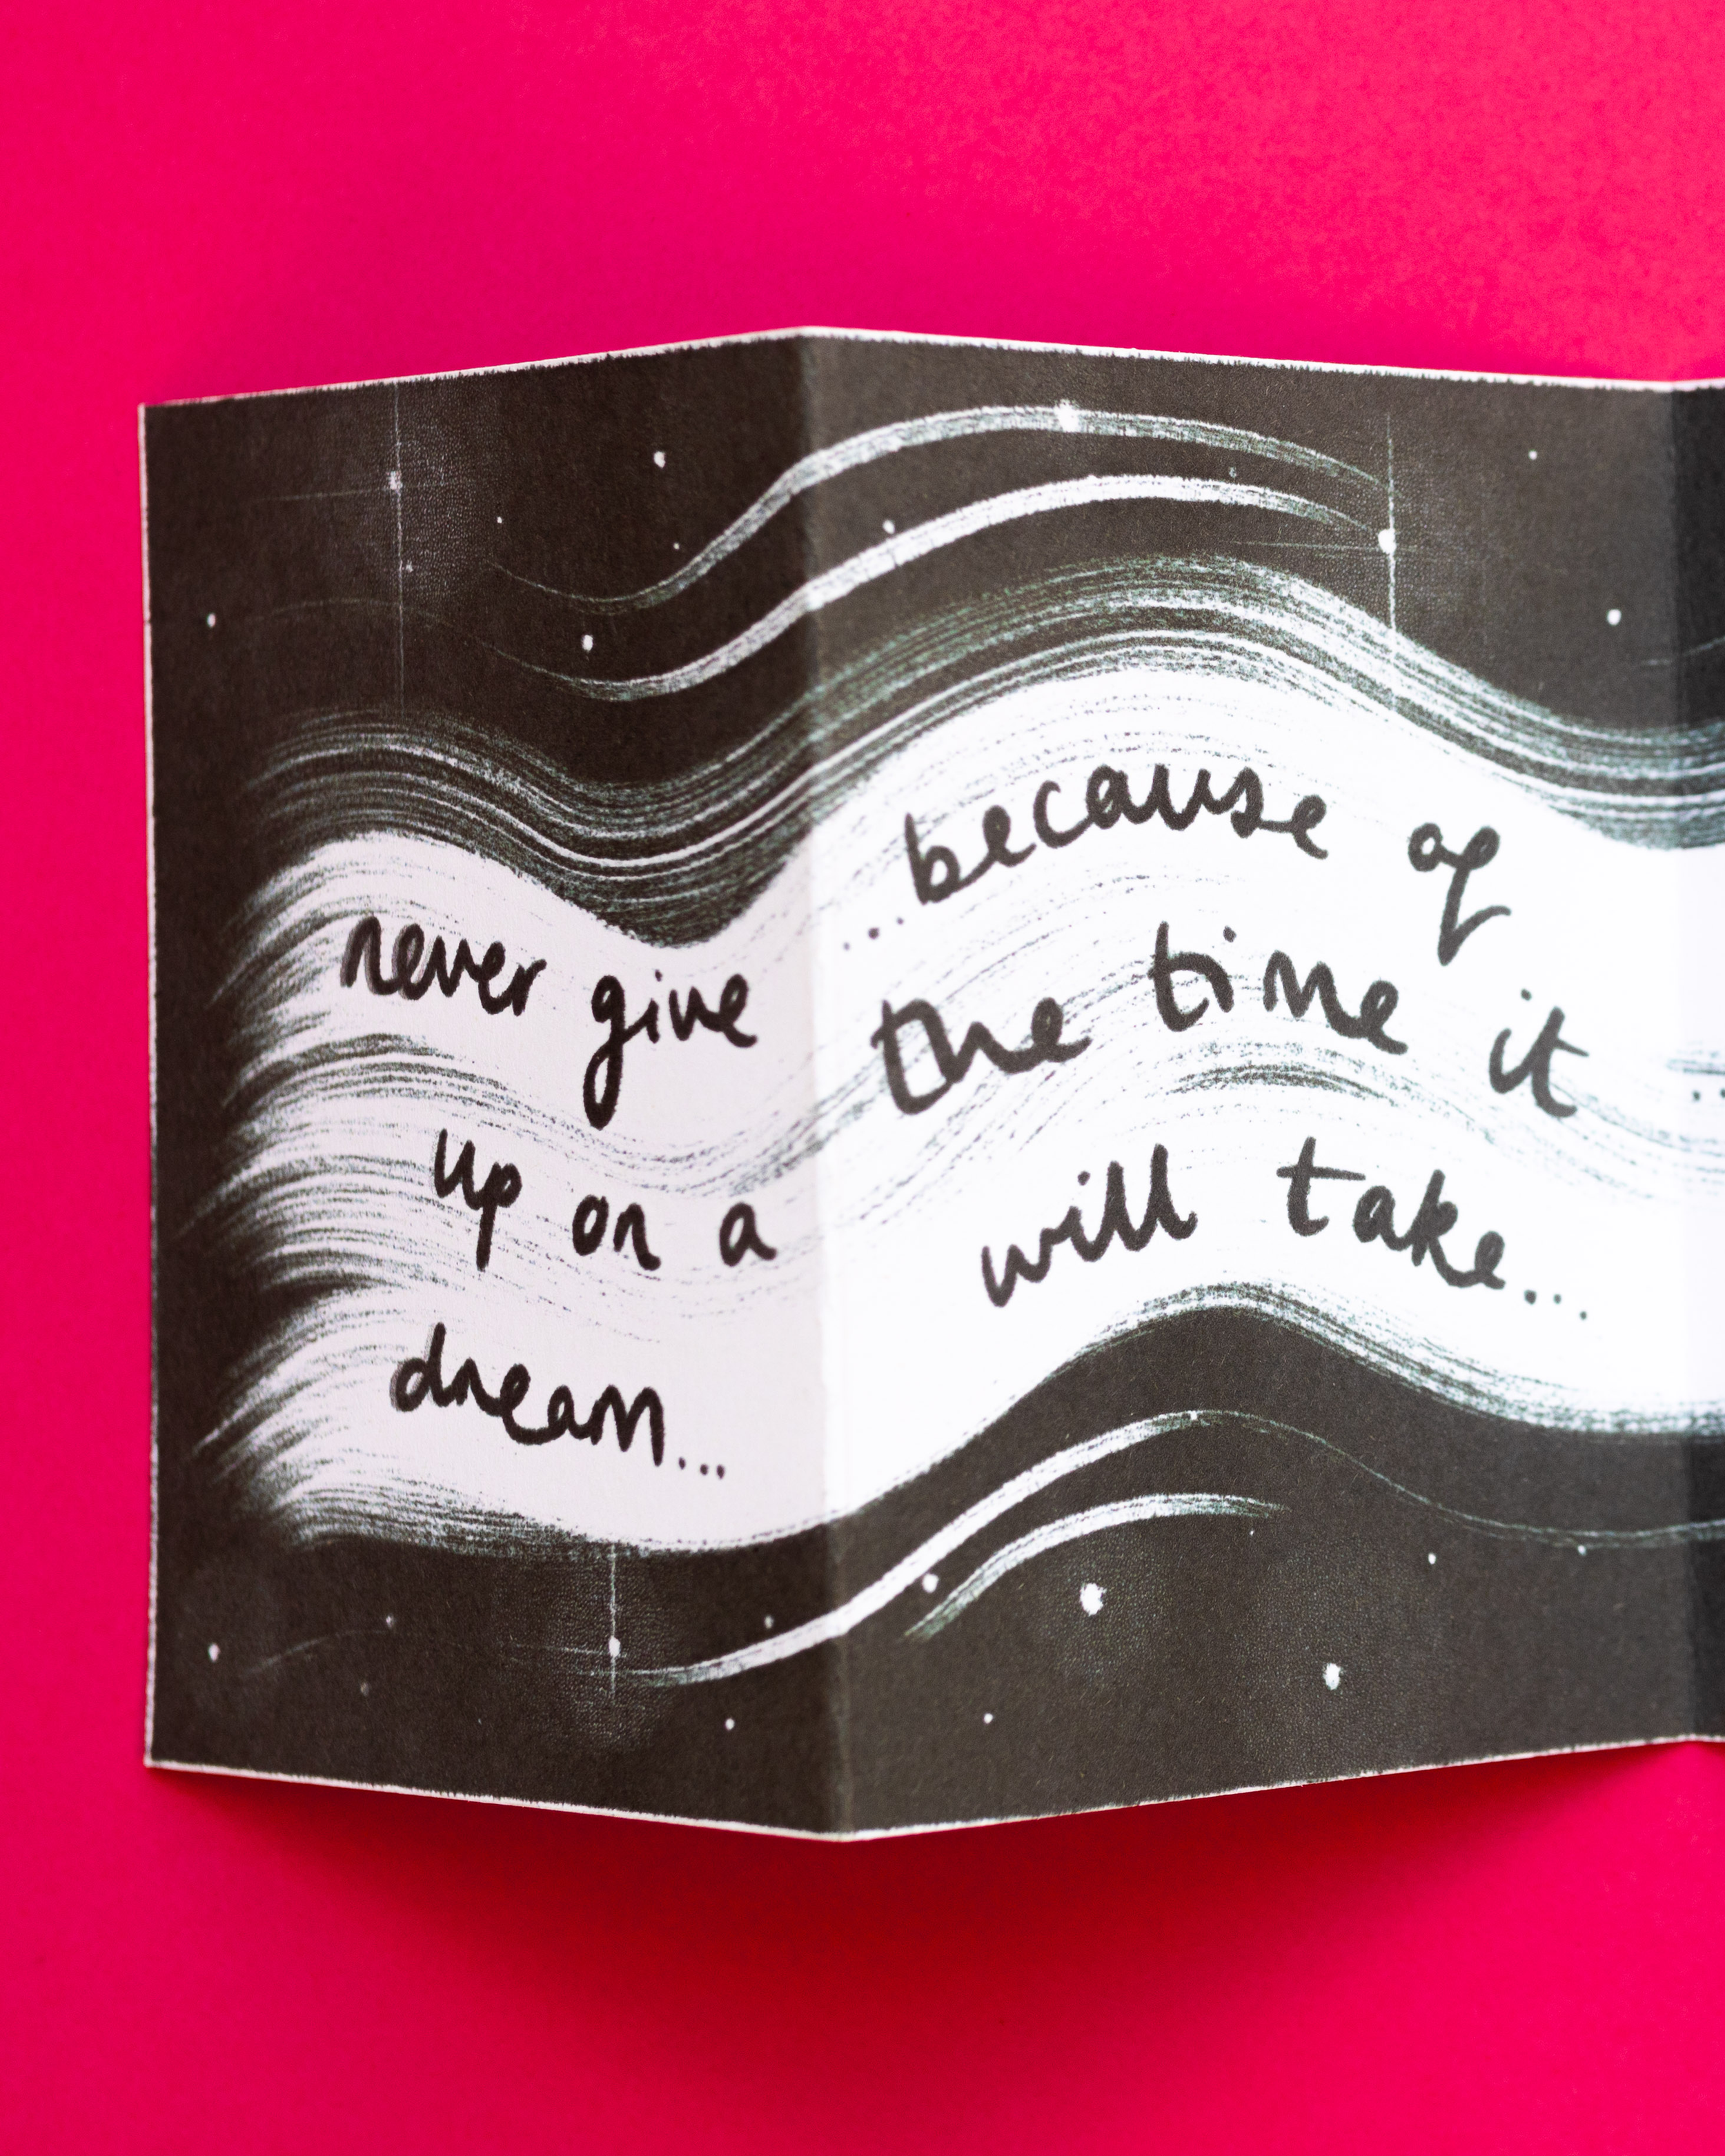 never give
up on a
dream...
...because of
the time it
will take...